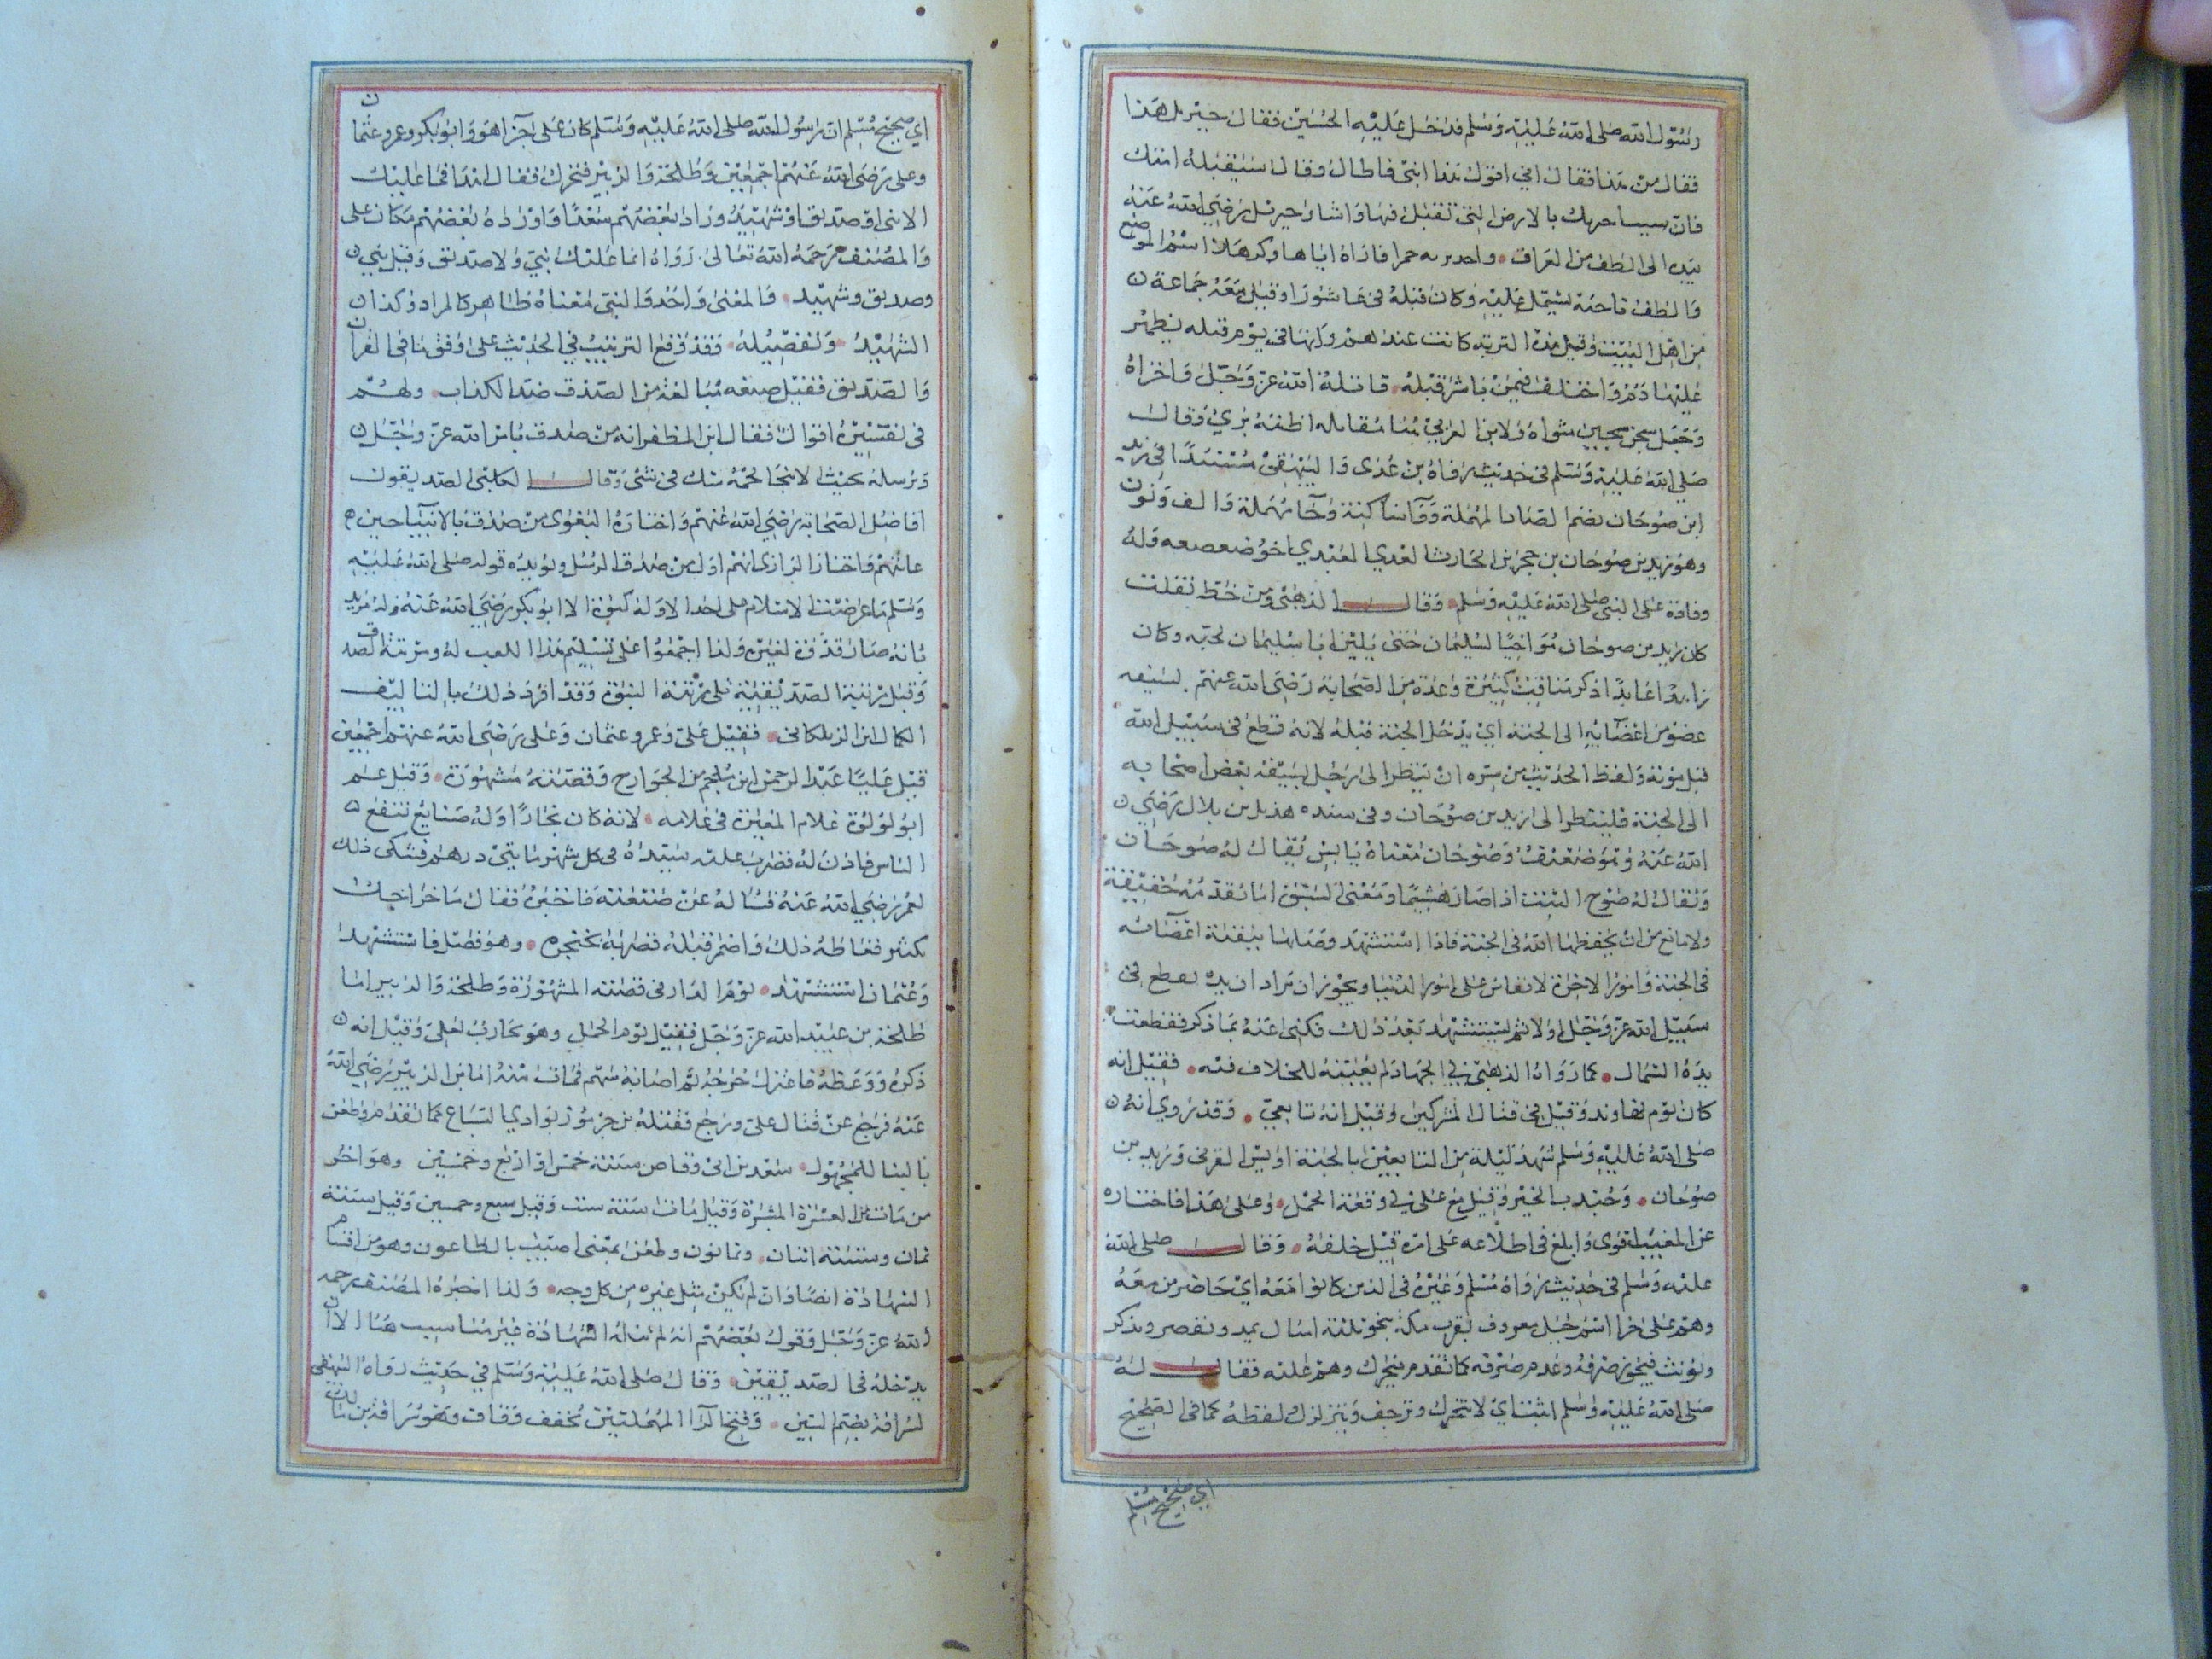 رسول الله صلى الله عليه وسلم فدخل عليه الحسين فقال جبريل هذا
فقال من هذا فقال ابني فاطال وقال ستقتله امتك
فان سيساحريك بالارض التي تقتل فيها واشار جبريل رضي الله عنه
بيده الى الطف من العراق واحد تربه حمرا فاراه اياها وكرهلا اسم الموضع
والطف ناحية يشتمل عليه وكان قتله في عاشورا وقتل معه جماعة
من اهل البيت وقيل هذه التربة كانت عندهم وانها في يوم قتله
عليها دم واختلف فيمن باشر قتله قاتله الله عز وجل واخزاه
وجعل سجن سجين مثواه ولابن العربي هنا مقاله اظنه بري وقال
صلى الله عليه وسلم في حديث رواه بن عدى والبيهقي مسندا في زيد
ابن صوحان بضم الصاد المهملة وواو ساكنة وحا مهملة والف ونون
وهو زيد بن صوحان بن حجر بن الحارث العبدي اخو صعصعه وله
وفادة على النبي صلى الله عليه وسلم وقال الذهبى ومن خطه نقلت
كان زيد بن صوحان مواخيا لسليمان حتى يكنى ابا سليمان لحبه وكان
زاهدا عابدا ذكر مناقب كثيرة وعده من الصحابة رضي الله عنهم يسبقه
عضو من اعضايه الى الجنة اي يدخل الجنة قبله لانه قطع في سبيل الله
قبل موته ولفظ الحديث من سره ان ينظر الى رجل يسبقه بعض اعضايه
الى الجنة فلينظر الى زيد بن صوحان وفي سنده هذيل بن بلال رضي
الله عنه وهو ضعيف وصوحان معناه يابس يقال له صوحان
ويقال له صوح النبت اذا صار هشيما ومعنى السبق اما تقدمه حقيقة
ولا مانع من ان يحفظها الله في الجنة فاذا استشهد وصلها ببقية اعضائه
في الجنة وامور الاخرة لا تقاس على امور الدنيا ويجوز ان يراد ان يده تقطع في
سبيل الله عز وجل اولا ثم يستشهد بعد ذلك فكنى عنه بما ذكر فقطعت
يده الشمال كما رواه الذهبي في الجهاد لم يعينه للخلاف فيه فقيل انه
كان يوم نهاوند وقيل في قتال المشركين وقيل انه تابعي وقد روي انه
صلى الله عليه وسلم شهد ليلة من التابعين بالجنة اويس القرني وزيد بن
صوحان وجندب الخير وقيل مع على في وقعة الجمل وعلى هذا فاختاره
عن المغيبات قوى وابلغ في اطلاعه على امره قبل خلقه وقال صلى الله
عليه وسلم في حديث رواه مسلم وغيره في الذين كانوا معه اي حاضر من معه
وهم على حرا اسم جبل معروف بقرب مكة بنحو ثلثة اميال يمد ويقصر ويذكر
ويونث فيجوز صرفه وعدم صرفه كما تقدم فتحرك وهم عليه فقال له
صلى الله عليه وسلم اثبت اي لا تتحرك وترجف وتتزلزل لفظه كما في الصحيح
اي صحيح مسلم
اي صحيح مسلم ان رسول الله صلى الله عليه وسلم كان على حرا هو وابو بكر وعمر وعثمان
وعلى رضي الله عنهم اجمعين وطلحة والزبير فتحرك فقال اهدا فما عليك
الا نبى او صديق او شهيد وزاد بعضهم سعدا واو زاده بعضهم مكان على
والمصنف رحمه الله تعالى رواه انما عليك نبي ولا صديق وقيل نبي
وصديق وشهيد والمعنى واحد والنبي معناه ظاهر كالمراد وكذا
الشهيد وتفصيله فقد وقع الترتيب في الحديث على وفق ما في القران
والصديق فعيل صيغه مبالغة من الصدق ضد الكذاب ولهم
في تفسيره اقوال فقال ابن المظفر انه من صدق بامر الله عز وجل
ورسله بحيث لا يتخالجه شك في شي وقال الكلبي الصديقون
افاضل الصحابة رضي الله عنهم واختاره البغوى من صدق بالانبيا حين
عاينهم واختار الرازى انهم اول من صدق الرسل ويويده قوله صلى الله عليه
وسلم ما عرضت الاسلام على احد الا وله كبوة الا ابو بكر رضي الله عنه فله مزيد
بانه صار قدوة لغيره ولذا اجمعوا على تسليم هذا اللقب له ومرتبة الصد
وقيل مرتبة الصديقية تلى مرتبة النبوة وقد افرد ذلك بالتاليف
الكمال ابن الزملكانى فقيل على وعمر وعثمان وعلى رضي الله عنهم اجمعين
قتل عليا عبد الرحمن ابن ملجم من الخوارج وقصته مشهورة وقتل عمر
ابو لولوة غلام المغيرة في غلامه لانه كان نجارا وله صنايع تنفع
الناس فاذن له فضرب عليه سيده في كل شهر مايتى درهم فشكى ذلك
لعمر رضي الله عنه فساله عن صنعته فاخبره فقال ما خراجك
بكثير فغاظه ذلك واضمر قتله فضربه بخنجره وهو يصلى فاستشهد
وعثمان استشهد يوم الدار في قصته المشهورة وطلحة والزبير اما
طلحة بن عبيد الله عز وجل فقتل يوم الجمل وهو محارب لعلى وقيل انه
ذكره ووعظه فاعتزل خروجه ثم اصابه سهم فمات منه اما ابن الزبير رضي الله
عنه فرجع عن قتال على ورجع فقتله بن جرموز بوادي السباع كما تقدم وطعن
بالبنا للمجهول سعد بن ابى وقاص سنة خمس او اربع وخمسين وهو اخر
من مات من العشرة المبشرة وقيل مات سنة ست وقيل سبع وخمسين وقيل سنة
ثمان وستنة اثنان وثمانون وطعن بمعنى اصيب بالطاعون وهو من اقسام
الشهادة ايضا وان لم يكن مثل غيره من كل وجه ولذا اخبره المصنف رحمه
الله عز وجل وقول بعضهم انه لم تنله الشهادة غير مناسب هنا الا ان
يدخله في الصديقين وقال صلى الله عليه وسلم في حديث رواه البيهقي
لسراقة بضم السين وفتح الرا المهملتين مخفف وقاف وهو سراقة بن مالك